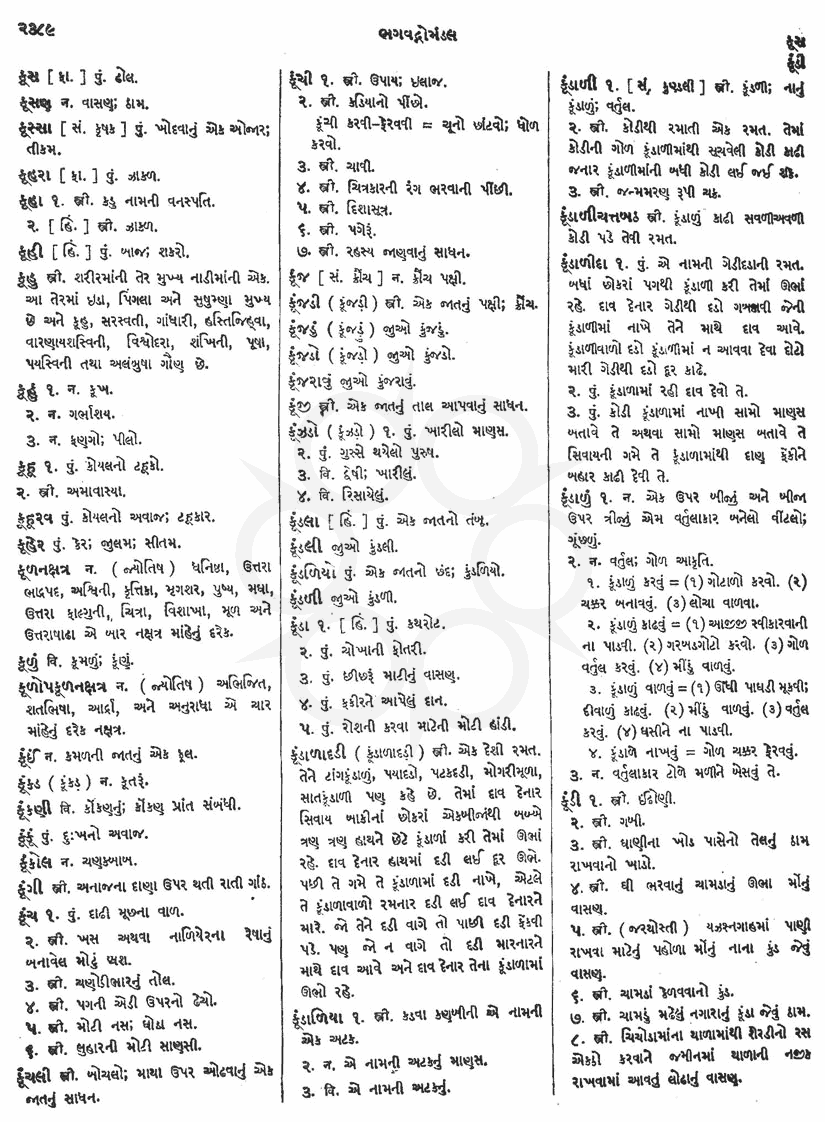 ૨૩૮૯
ભગવદ્ગોમંડલ
કૂસ
કૂંડી
કૂસ [ ફા. ] પું. ઢોલ.
કૂસણ ન. વાસણ; ઠામ.
કૂસ્સા [ સં. કૃષક ] પું. ખોદવાનું એક ઓજાર;
તીકમ.
કૂહરા [ ફા. ] પું. ઝાકળ.
કૂહા ૧. સ્ત્રી. કડુ નામની વનસ્પતિ.
૨. [ હિં. ] સ્ત્રી. ઝાકળ.
કૂહી [ હિં. ] પું. બાજ; શકરો.
કૂહુ સ્ત્રી. શરીરમાંની તેર મુખ્ય નાડીમાંની એક.
આ તેરમાં ઇડા, પિંગલા અને સુષુમ્ણા મુખ્ય
છે અને કૂહુ, સરસ્વતી, ગાંધારી, હસ્તિજિહ્વા,
વારણાયશસ્વિની, વિશ્વોદરા, શંખિની, પૂષા,
પયસ્વિની તથા અલંબુષા ગૌણ છે.
કૂહું ૧. ન. કૂખ.
૨. ન. ગર્ભાશય.
૩. ન. ફણુગો; પીલો.
કૂહૂ ૧. પું. કોયલનો ટહૂકો.
૨. સ્ત્રી. અમાવાસ્યા.
કૂહૂરવ પું. કોયલનો અવાજ; ટહૂકાર.
કૂહેર પું. કેર; જુલમ; સીતમ.
કૂળનક્ષત્ર ન. ( જ્યોતિષ ) ધનિષ્ઠા, ઉત્તરા
ભાદ્રપદ, અશ્વિની, કૃત્તિકા, મૃગશર, પુષ્ય, મઘા,
ઉત્તરા ફાલ્ગુની, ચિત્રા, વિશાખા, મૂળ અને
ઉત્તરાષાઢા એ બાર નક્ષત્ર માંહેનું દરેક.
કૂળું વિ. કૂમળું; કૂંણું.
કૂળોપકૂળનક્ષત્ર ન. ( જ્યોતિષ ) અભિજિત,
શતભિષા, આર્દ્રા, અને અનુરાધા એ ચાર
માંહેનું દરેક નક્ષત્ર.
કૂંઈ ન. કમળની જાતનું એક ફૂલ.
કૂંકડ ( કૂંકડ઼ ) ન. કૂતરૂં.
કૂંકણી વિ. કોંકણનું; કોંકણ પ્રાંત સંબંધી.
કૂંકૂં પું. દુઃખનો અવાજ.
કૂંકોલ ન. ચણકબાબ.
કૂંગી સ્ત્રી. અનાજના દાણા ઉપર થતી રાતી ગાંઠ.
કૂંચ ૧. પું. દાઢી મૂછના વાળ.
૨. સ્ત્રી. ખસ અથવા નાળિયેરના રેષાનું
બનાવેલ મોટું બ્રશ.
૩. સ્ત્રી. ચણોઠીભારનું તોલ.
૪. સ્ત્રી. પગની એડી ઉપરનો ઢેચો.
૫. સ્ત્રી. મોટી નસ; ધોડા નસ.
૬. સ્ત્રી. લુહારની મોટી સાણસી.
કૂંચલી સ્ત્રી. બોચલો; માથા ઉપર ઓઢવાનું એક
જાતનું સાધન.
કૂંચી ૧. સ્ત્રી. ઉપાય; ઇલાજ.
૨. સ્ત્રી. કડિયાનો પીંછો.
કૂંચી કરવી-ફેરવવી = ચૂનો છાંટવો; ધોળ
કરવો.
૩. સ્ત્રી. ચાવી.
૪. સ્ત્રી. ચિત્રકારની રંગ ભરવાની પીંછી.
૫. સ્ત્રી. દિશાસૂત્ર.
૬. સ્ત્રી. પગેરૂં.
૭. સ્ત્રી. રહસ્ય જાણવાનું સાધન.
કૂંજ [ સં. ક્રૌંચ ] ન. ક્રૌંચ પક્ષી.
કૂંજડી ( કૂંજડ઼ી ) સ્ત્રી. એક જાતનું પક્ષી; ક્રૌંચ.
કૂંજડું ( કૂંજડ઼ું ) જુઓ કુંજડું.
કૂંજડો ( કૂંજડ઼ો ) જુઓ કુંજડો.
કૂંજરાવું જુઓ કુંજરાવું.
કૂંજી સ્ત્રી. એક જાતનું તાલ આપવાનું સાધન.
કૂંઝડો ( કૂંઝડ઼ો ) ૧. પું. ખારીલો માણસ.
૨. પું. ગુસ્સે થયેલો પુરુષ.
૩. વિ. દ્વેષી; ખારીલું.
૪. વિ. રિસાયેલું.
કૂંડલા [ હિં. ] પું. એક જાતનો તંબૂ.
કૂંડલી જુઓ કુંડલી.
કૂંડળિયો પું. એક જાતનો છંદ; કુંડળિયો.
કૂંડળી જુઓ કુંડળી.
કૂંડા ૧. [ હિં. ] પું. કથરોટ.
૨. પું. ચોખાની ફોતરી.
૩. પું. છીછરૂં માટીનું વાસણ.
૪. પું. ફકીરને આપેલું દાન.
૫. પું. રોશની કરવા માટેની મોટી હાંડી.
કૂંડાળાદડી ( કૂંડાળાદડ઼ી ) સ્ત્રી. એક દેશી રમત.
તેને ટાંગકૂંડાળું, પચાદડો, પટકદડી, મોગરીમૂળા,
સાતકૂંડાળી પણ કહે છે. તેમાં દાવ દેનાર
સિવાય બાકીનાં છોકરાં એકબીજાથી બબ્બે
ત્રણ ત્રણ હાથને છેટે કૂંડાળાં કરી તેમાં ઊભાં
રહે. દાવ દેનાર હાથમાં દડી લઈ દૂર ઊભે.
પછી તે ગમે તે કૂંડાળામાં દડી નાખે, એટલે
તે કૂંડાળાવાળો રમનાર દડી લઈ દાવ દેનારને
મારે. જો તેને દડી વાગે તો પાછી દડી ફેંકવી
પડે. પણ જો ન વાગે તો દડી મારનારને
માથે દાવ આવે અને દાવ દેનાર તેના કૂંડાળામાં
ઊભો રહે.
કૂંડાળિયા ૧. સ્ત્રી. કડવા કણબીની એ નામની
એક અટક.
૨. ન. એ નામની અટકનું માણસ.
૩. વિ. એ નામની અટકનું.
કૂંડાળી ૧. [ સં. કુણ્ડલી ] સ્ત્રી. કૂંડળી; નાનું
કૂંડાળું; વર્તુલ.
૨. સ્ત્રી. કોડીથી રમાતી એક રમત. તેમાં
કોડીની ગોળ કૂંડાળામાંથી સૂચવેલી કોડી કાઢી
જનાર કૂંડાળામાંની બધી કોડી લઈ જઈ શકે.
૩. સ્ત્રી. જન્મમરણ રૂપી ચક્ર.
કૂંડાળીચત્તબઠ સ્ત્રી. કૂંડાળું કાઢી સવળીઅવળી
કોડી પડે તેવી રમત.
કૂંડાળીદા ૧. પું. એ નામની ગેડીદડાની રમત.
બધાં છોકરાં પગથી કૂંડાળા કરી તેમાં ઊભાં
રહે. દાવ દેનાર ગેડીથી દડો ગબડાવી જેની
કૂંડાળામાં નાખે તેને માથે દાવ આવે.
કૂંડાળાવાળો દડો કૂંડાળામાં ન આવવા દેવા દોટો
મારી ગેડીથી દડો દૂર કાઢે.
૨. પું. કૂંડાળામાં રહી દાવ દેવો તે.
૩. પું. કોડી કૂંડાળામાં નાખી સામો માણસ
બતાવે તે અથવા સામો માણસ બતાવે તે
સિવાયની ગમે તે કૂંડાળામાંથી દાણુ ફેંકીને
બહાર કાઢી દેવી તે.
કૂંડાળું ૧. ન. એક ઉપર બીજું અને બીજા
ઉપર ત્રીજું એમ વર્તુલાકાર બનેલો વીંટલો;
ગૂંછળું.
૨. ન. વર્તુલ; ગોળ આકૃતિ.
૧. કૂંડાળું કરવું = (૧) ગોટાળો કરવો. (૨)
ચક્કર બનાવવું. (૩) લોચા વાળવા.
૨. કૂંડાળું કાઢવું = (૧) આજીજી સ્વીકારવાની
ના પાડવી. (૨) ગરબડગોટો કરવો. (૩) ગોળ
વર્તુલ કરવું. (૪) મીંડું વાળવું.
૩. કૂંડાળું વાળવું = (૧) ઊંધી પાઘડી મૂકવી;
દીવાળું કાઢવું. (૨) મીંડું વાળવું. (૩) વર્તુલ
કરવું. (૪) ઘસીને ના પાડવી.
૪. કૂંડાળે નાખવું = ગોળ ચક્કર ફેરવવું.
૩. ન. વર્તુલાકાર ટોળે મળીને બેસવું તે.
કૂંડી ૧. સ્ત્રી. ઈંઢોણી.
૨. સ્ત્રી. ગબી.
૩. સ્ત્રી. ઘાણીના ખોડ પાસેનો તેલનું ઠામ
રાખવાનો ખાડો.
૪. સ્ત્રી. ઘી ભરવાનું ચામડાનું ઊભા મોંનું
વાસણ.
૫. સ્ત્રી. ( જરથોસ્તી ) યઝસ્નગાહમાં પાણી
રાખવા માટેનું પહોળા મોંનું નાના કુંડ જેવું
વાસણ.
૬. સ્ત્રી. ચામડાં કેળવવાનો કુંડ.
૭. સ્ત્રી. ચામડું મઢેલું નગારાનું કૂંડા જેવું ઠામ.
૮. સ્ત્રી. ચિચોડામાંના થાળામાંથી શેરડીનો રસ
એકઠો કરવાને જમીનમાં થાળાની નજીક
રાખવામાં આવતું લોઢાનું વાસણ.